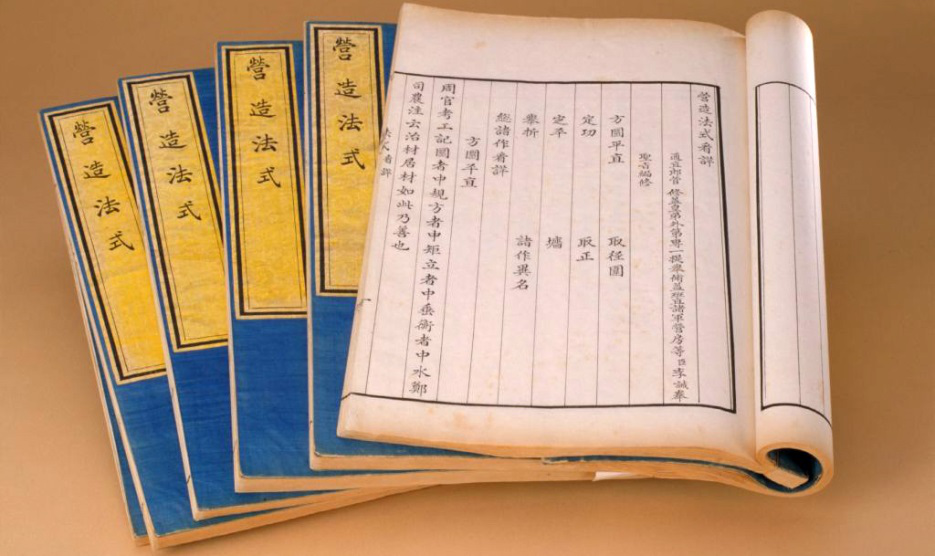 營造法式
營造法式
營造法式
營造法式
營造法式看詳
通直郎管修蓋皇弟外第專一提舉修蓋班直諸軍營房等臣李誡奉
聖旨編修
方圜平直 取徑圍
定功 取正
定平 牆
舉折 諸作異名
總諸作看詳
方圜平直
周官考工記圜者中規方者中矩立者中垂衡者中水鄭
司農注云治材居材如此乃善也
法式看詳